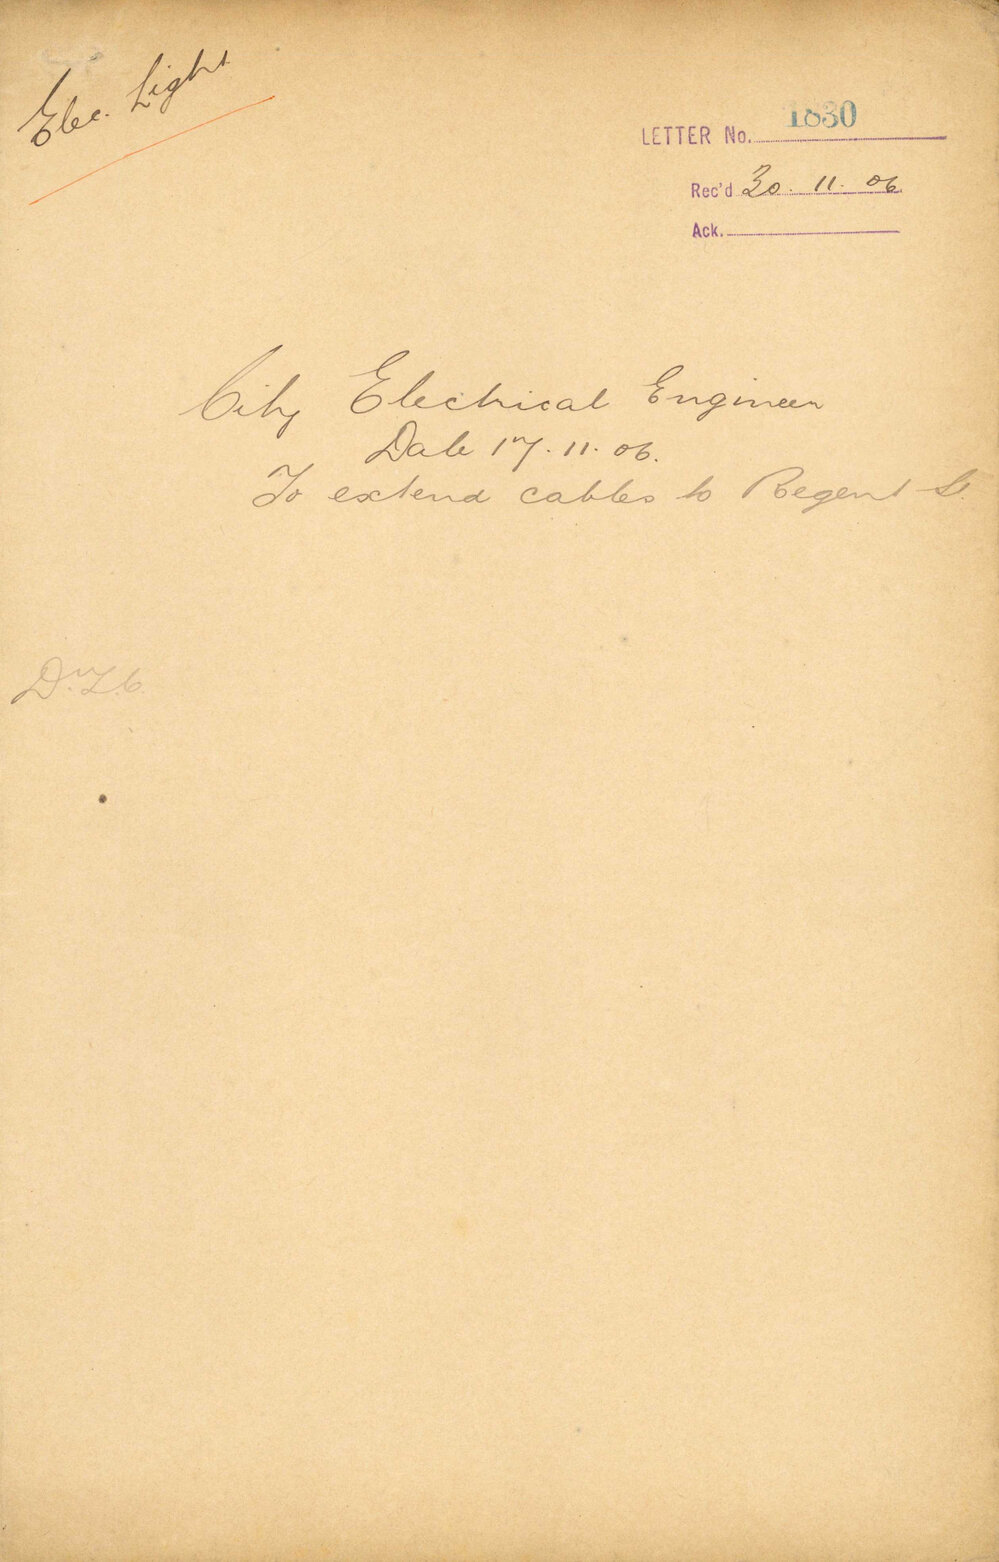 Elec. Light
LETTER No. 1830
Rec'd 30. 11. 06.
Ack.
City Electrical Engineer
Date 17. 11. 06.
To extend cables to Regent St.